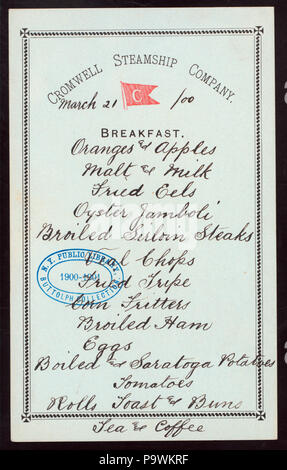 CROMWELL STEAMSHIP COMPANY.
March 21 /00
C
BREAKFAST.
Oranges & Apples
Malt & Milk
Fried Eels
Oyster Jamboli
Broiled Sirloin Steaks
Veal Chops
Fried Tripe
Corn Fritters
Broiled Ham
Eggs
Boiled & Saratoga Potatoes
Tomatoes
Rolls Toast & Buns
Tea & Coffee
N.Y. PUBLIC LIBRARY
1900-1901
BUTTOLPH COLLECTION
alamy
alamy
Image ID: P9WKRF
www.alamy.com